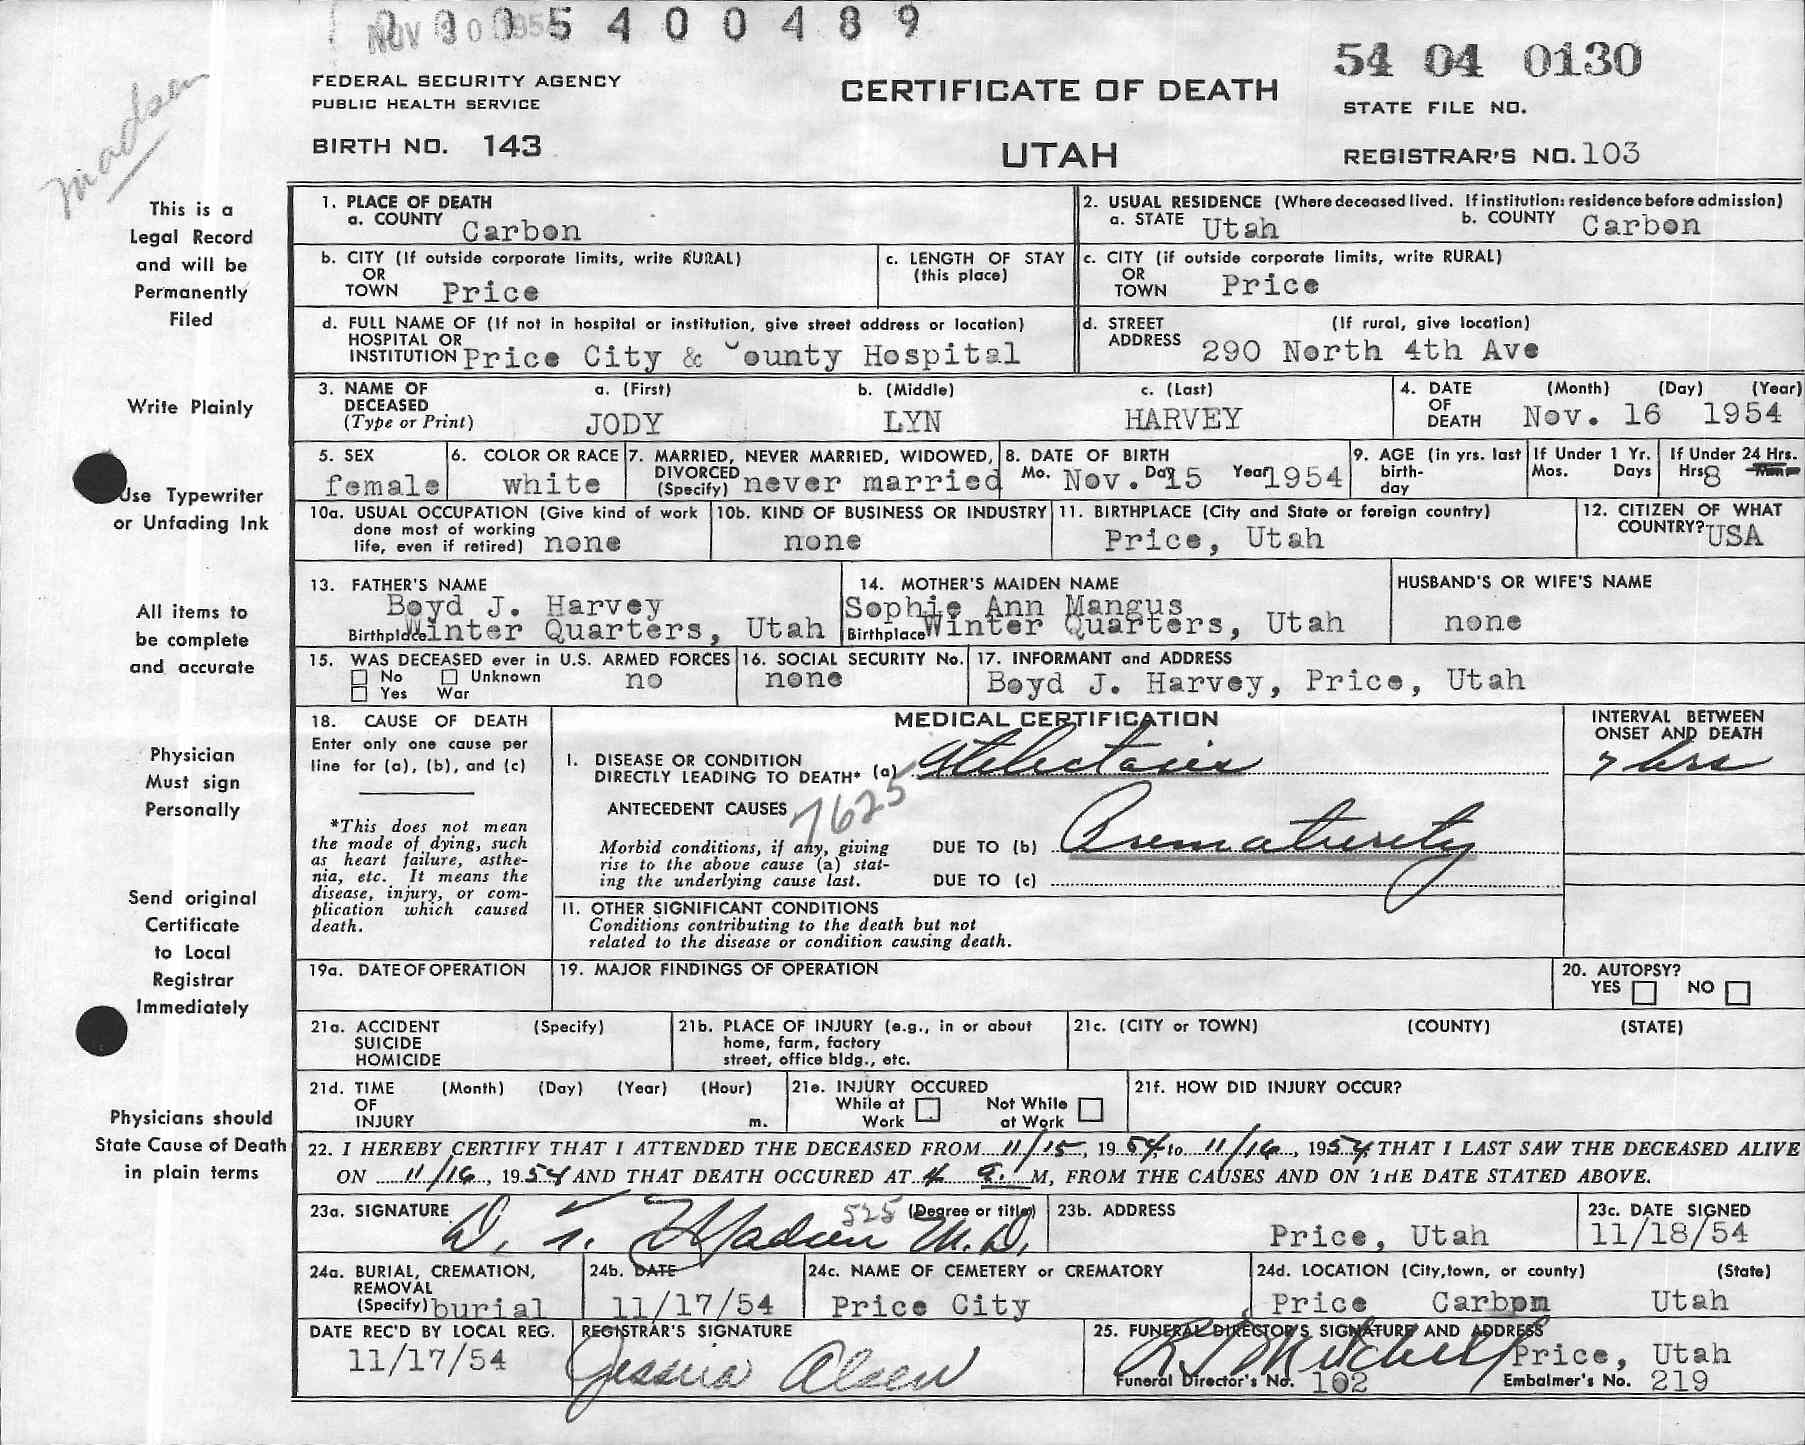 NOV 30 195
5 4 0 0 4 8 9
54 04 0130
FEDERAL SECURITY AGENCY
PUBLIC HEALTH SERVICE
CERTIFICATE OF DEATH
STATE FILE NO.
BIRTH NO. 143
UTAH
REGISTRAR'S NO. 103
Madsen
This is a
Legal Record
and will be
Permanently
Filed
Write Plainly
Use Typewriter
or Unfading Ink
All items to
be complete
and accurate
Physician
Must sign
Personally
Send original
Certificate
to Local
Registrar
Immediately
Physicians should
State Cause of Death
in plain terms
1. PLACE OF DEATH
a. COUNTY Carbon
2. USUAL RESIDENCE (Where deceased lived. If institution: residence before admission)
a. STATE Utah b. COUNTY Carbon
b. CITY (If outside corporate limits, write RURAL)
OR
TOWN Price
c. LENGTH OF STAY
(this place)
c. CITY (if outside corporate limits, write RURAL)
OR
TOWN Price
d. FULL NAME OF (If not in hospital or institution, give street address or location)
HOSPITAL OR
INSTITUTION Price City & County Hospital
d. STREET (If rural, give location)
ADDRESS 290 North 4th Ave
3. NAME OF a. (First) b. (Middle) c. (Last)
DECEASED
(Type or Print) JODY LYN HARVEY
4. DATE (Month) (Day) (Year)
OF
DEATH Nov. 16 1954
5. SEX
female
6. COLOR OR RACE
white
7. MARRIED, NEVER MARRIED, WIDOWED,
DIVORCED
(Specify) never married
8. DATE OF BIRTH
Mo. Nov. Day 15 Year 1954
9. AGE (in yrs. last
birth-
day
If Under 1 Yr.
Mos. Days
If Under 24 Hrs.
Hrs 8
10a. USUAL OCCUPATION (Give kind of work
done most of working
life, even if retired) none
10b. KIND OF BUSINESS OR INDUSTRY
none
11. BIRTHPLACE (City and State or foreign country)
Price, Utah
12. CITIZEN OF WHAT
COUNTRY? USA
13. FATHER'S NAME
Boyd J. Harvey
Birthplace Winter Quarters, Utah
14. MOTHER'S MAIDEN NAME
Sophie Ann Mangus
Birthplace Winter Quarters, Utah
HUSBAND'S OR WIFE'S NAME
none
15. WAS DECEASED ever in U.S. ARMED FORCES
No Unknown no
Yes War
16. SOCIAL SECURITY No.
none
17. INFORMANT and ADDRESS
Boyd J. Harvey, Price, Utah
18. CAUSE OF DEATH
Enter only one cause per
line for (a), (b), and (c)
*This does not mean
the mode of dying, such
as heart failure, asthe-
nia, etc. It means the
disease, injury, or com-
plication which caused
death.
MEDICAL CERTIFICATION
I. DISEASE OR CONDITION
DIRECTLY LEADING TO DEATH* (a) Atelectasis
ANTECEDENT CAUSES 7625
Morbid conditions, if any, giving
rise to the above cause (a) stat-
ing the underlying cause last.
DUE TO (b) Prematurity
DUE TO (c)
INTERVAL BETWEEN
ONSET AND DEATH
7 hrs
11. OTHER SIGNIFICANT CONDITIONS
Conditions contributing to the death but not
related to the disease or condition causing death.
19a. DATE OF OPERATION
19. MAJOR FINDINGS OF OPERATION
20. AUTOPSY?
YES NO
21a. ACCIDENT (Specify)
SUICIDE
HOMICIDE
21b. PLACE OF INJURY (e.g., in or about
home, farm, factory
street, office bldg., etc.
21c. (CITY or TOWN) (COUNTY) (STATE)
21d. TIME (Month) (Day) (Year) (Hour)
OF
INJURY m.
21e. INJURY OCCURED
While at Not While
Work at Work
21f. HOW DID INJURY OCCUR?
22. I HEREBY CERTIFY THAT I ATTENDED THE DECEASED FROM 11/15, 1954, to 11/16, 1954, THAT I LAST SAW THE DECEASED ALIVE
ON 11/16, 1954 AND THAT DEATH OCCURED AT 4 a. M, FROM THE CAUSES AND ON THE DATE STATED ABOVE.
23a. SIGNATURE 525 (Degree or title)
D. T. Madsen M.D.
23b. ADDRESS
Price, Utah
23c. DATE SIGNED
11/18/54
24a. BURIAL, CREMATION,
REMOVAL
(Specify) burial
24b. DATE
11/17/54
24c. NAME OF CEMETERY or CREMATORY
Price City
24d. LOCATION (City, town, or county) (State)
Price Carbon Utah
DATE REC'D BY LOCAL REG.
11/17/54
REGISTRAR'S SIGNATURE
Jessica Olsen
25. FUNERAL DIRECTOR'S SIGNATURE AND ADDRESS
Mitchell Price, Utah
Funeral Director's No. 102 Embalmer's No. 219